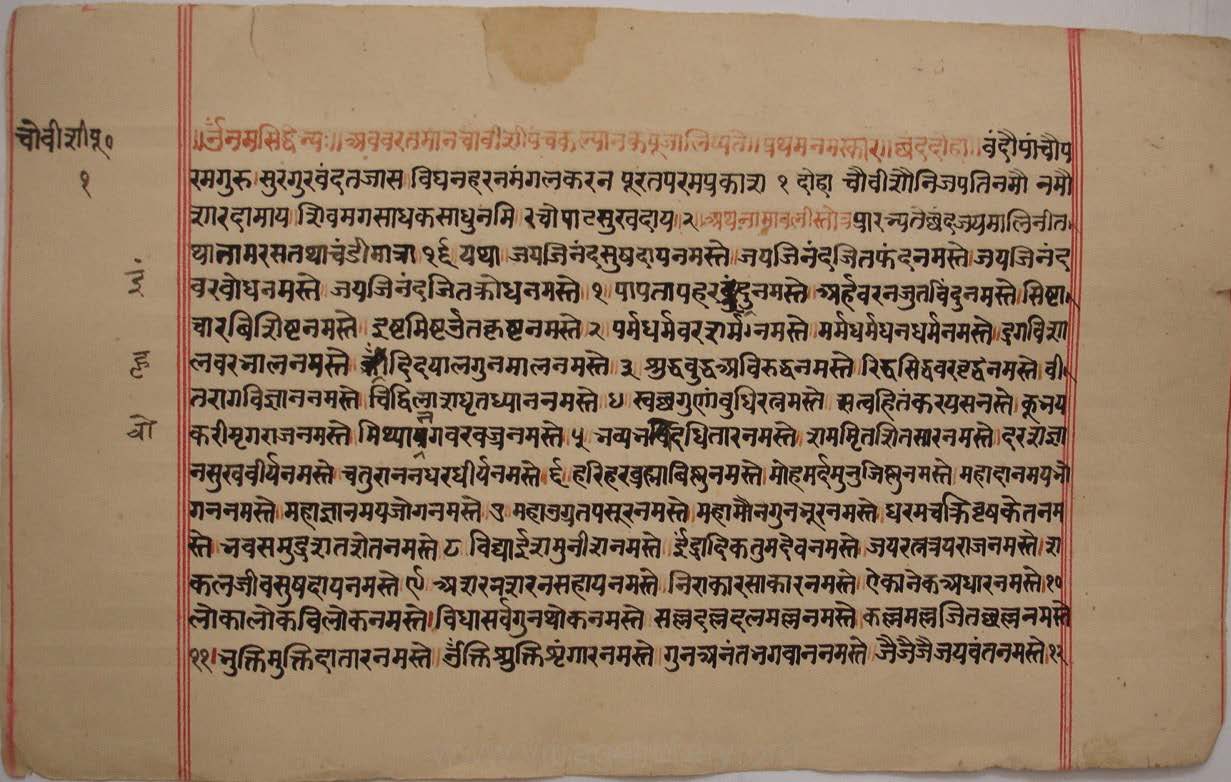 चौवीशीपू॰
१
॥ॐनमसिद्धेभ्यः॥ अथवरतमानचौवीशीपंचकल्यानकपूजालिष्यते॥ प्रथमनमस्कार॥ छंददोहा॥ वंदौपांचौप
रमगुरु सुरगुरवंदतजास विघनहरनमंगलकरन पूरतपरमप्रकाश १ दोहा चौवीशौंनिजपतिनमौ नमौ
शारदामाय शिवमगसाधकसाधुनमि रचोपाठसुखदाय २ अथनामावलीस्तोत्र छंदजयमालिनीत
थातामरसतथाचंडीमात्रा १६ यथा जयजिनंदसुषदायनमस्ते जयजिनंदजितफंदनमस्ते जयजिनंद
वरबोधनमस्ते जयजिनंदजितक्रोधनमस्ते १ पापतापहर नमस्ते अर्हवरनजुतविंदुनमस्ते सिष्टा
चारविशिष्टनमस्ते इष्टमिष्टउतकृष्टनमस्ते २ पर्मधर्मवरशर्मनमस्ते मर्मभर्मघनधर्मनमस्ते दृगविशा
लवरभालनमस्ते हृदिदयालगुनमालनमस्ते ३ शुद्धबुद्धअविरुद्धनमस्ते रिद्धसिद्धवर नमस्ते वी
तरागविज्ञाननमस्ते चिद्विलाशधृतध्याननमस्ते ४ स्वछगुणांबुधिरत्ननमस्ते सत्वहितंकरयत्ननमस्ते कुनय
करीमृगराजनमस्ते मिथ्या गवरवज्रनमस्ते ५ भव्यभ दधितारनमस्ते शर्मामृतशितसारनमस्ते दरशज्ञा
नसुखवीर्यनमस्ते चतुराननधरधीर्यनमस्ते ६ हरिहरब्रह्माबिस्नुनमस्ते मोहमर्दमुनुजिस्नुनमस्ते महादानमयभो
गननमस्ते महाज्ञानमयजोगनमस्ते ७ महाउग्रतपसूरनमस्ते महामौनगुनभूरनमस्ते धरमचक्रिवृषकेतनम
स्ते भवसमुद्रशतशेतनमस्ते ८ विद्याईशमुनीशनमस्ते इंद्रादिकनुमदेवनमस्ते जयरत्नत्रयराजनमस्ते श
कलजीवसुषदायनमस्ते ९ अशरनशरनसहायनमस्ते निराकारसाकारनमस्ते ऐकानेकअधारनमस्ते १०
लोकालोकविलोकनमस्ते विधासर्वगुनथोकनमस्ते सल्लदल्लदलमल्लनमस्ते कल्लमल्लजितछल्लनमस्ते
११ भुक्तिमुक्तिदातारनमस्ते उक्तिशुक्तिशृंगारनमस्ते गुनअनंतभगवाननमस्ते जैजैजैजयवंतनमस्ते १२